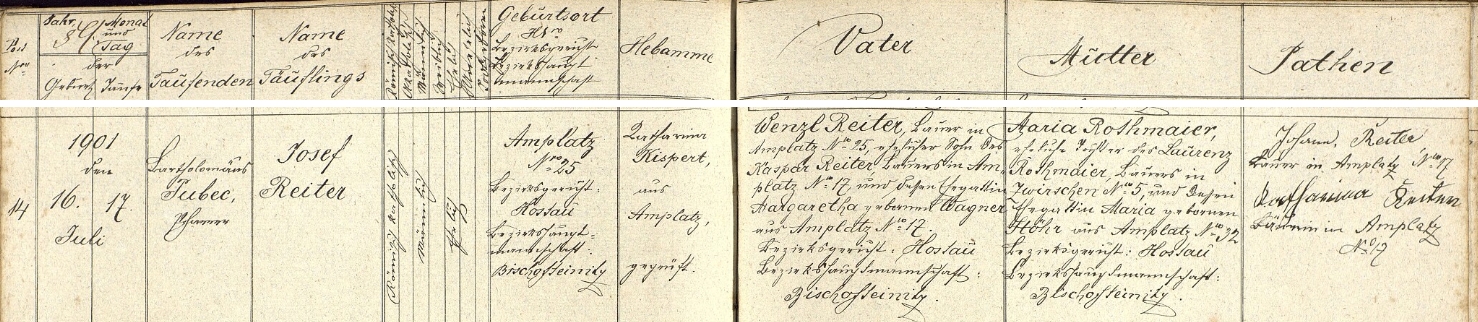 Post Nro
Jahr, Monat und Tag
der
Geburt Taufe
Name des Taufenden
Name des Täuflings
Römisch katholisch
Männlich
Weiblich
Ehelich
Unehelich
Geburtsort
Nro
Bezirksgericht
Bezirkshauptmannschaft
Hebamme
Vater
Mutter
Pathen
14
1901
den
16. 17
Juli
Bartholomäus
Tubec,
Pfarrer
Josef
Reiter
Römisch katholisch
Männlich
Ehelich
Amplatz
Nro 25
Bezirksgericht:
Hostau
Bezirkshaupt-
mannschaft:
Bischofteinitz
Katharina
Kispert,
aus
Amplatz,
geprüft.
Wenzl Reiter, Bauer in
Amplatz Nro 25, ehelicher Sohn des
Kaspar Reiter Bauers in Am-
platz Nro 17, und dessen Ehegattin
Margaretha gebornen Wagner
aus Amplatz Nro 17.
Bezirksgericht: Hostau
Bezirkshauptmannschaft:
Bischofteinitz.
Maria Rothmaier,
eheliche Tochter des Laurenz
Rothmaier, Bauers in
Zwirschen Nro 5, und dessen
Ehegattin Maria gebornen
Höhr aus Amplatz Nro 32
Bezirksgericht: Hostau
Bezirkshauptmannschaft:
Bischofteinitz.
Johann Reiter
Bauer in Amplatz Nro 17
Katharina Reiter
Bäuerin in Amplatz
No 17